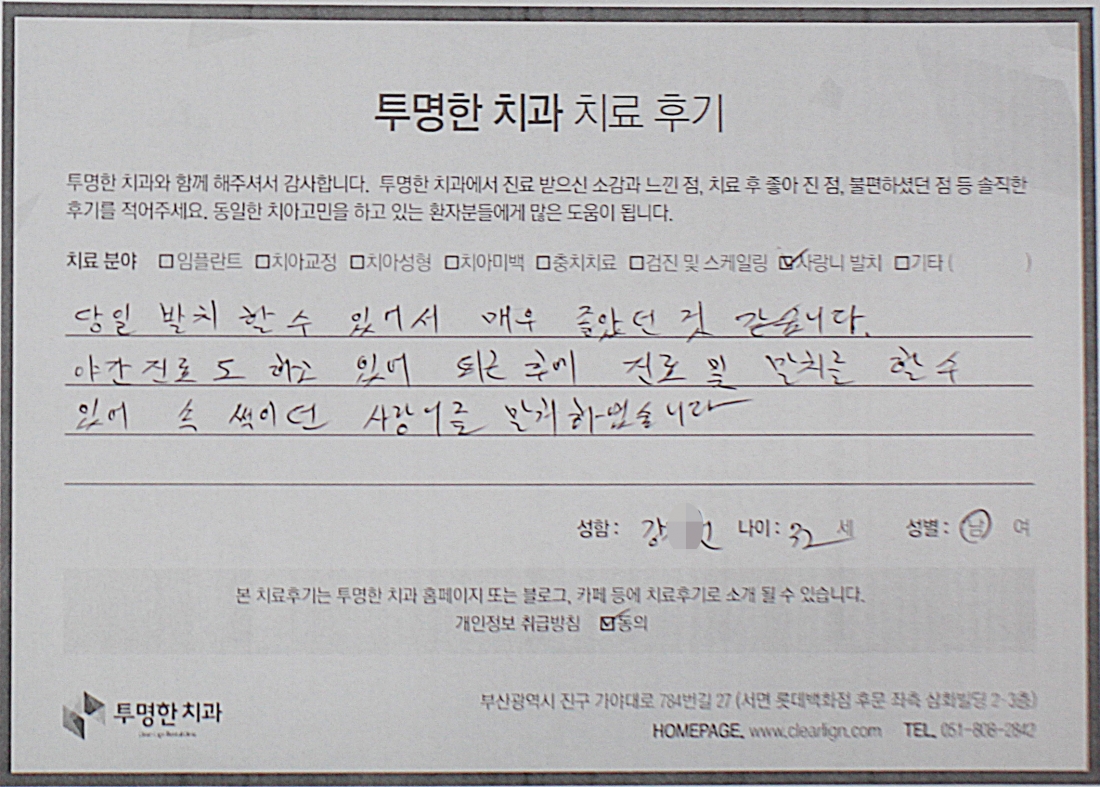 투명한 치과 치료 후기
투명한 치과와 함께 해주셔서 감사합니다. 투명한 치과에서 진료 받으신 소감과 느낀 점, 치료 후 좋아 진 점, 불편하셨던 점 등 솔직한
후기를 적어주세요. 동일한 치아고민을 하고 있는 환자분들에게 많은 도움이 됩니다.
치료 분야 □임플란트 □치아교정 □치아성형 □치아미백 □충치치료 □검진 및 스케일링 ☑사랑니 발치 □기타 ( )
당일 발치 할 수 있어서 매우 좋았던 것 같습니다.
야간진료도 하고 있어 퇴근 후에 진료 및 발치를 할 수
있어 속 썩이던 사랑니를 발치하였습니다
성함: 강 나이: 32 세 성별: 남 여
본 치료후기는 투명한 치과 홈페이지 또는 블로그, 카페 등에 치료후기로 소개 될 수 있습니다.
개인정보 취급방침 ☑동의
투명한 치과
부산광역시 진구 가야대로 784번길 27 (서면 롯데백화점 후문 좌측 삼화빌딩 2-3층)
HOMEPAGE. www.clearlign.com TEL. 051-808-2842